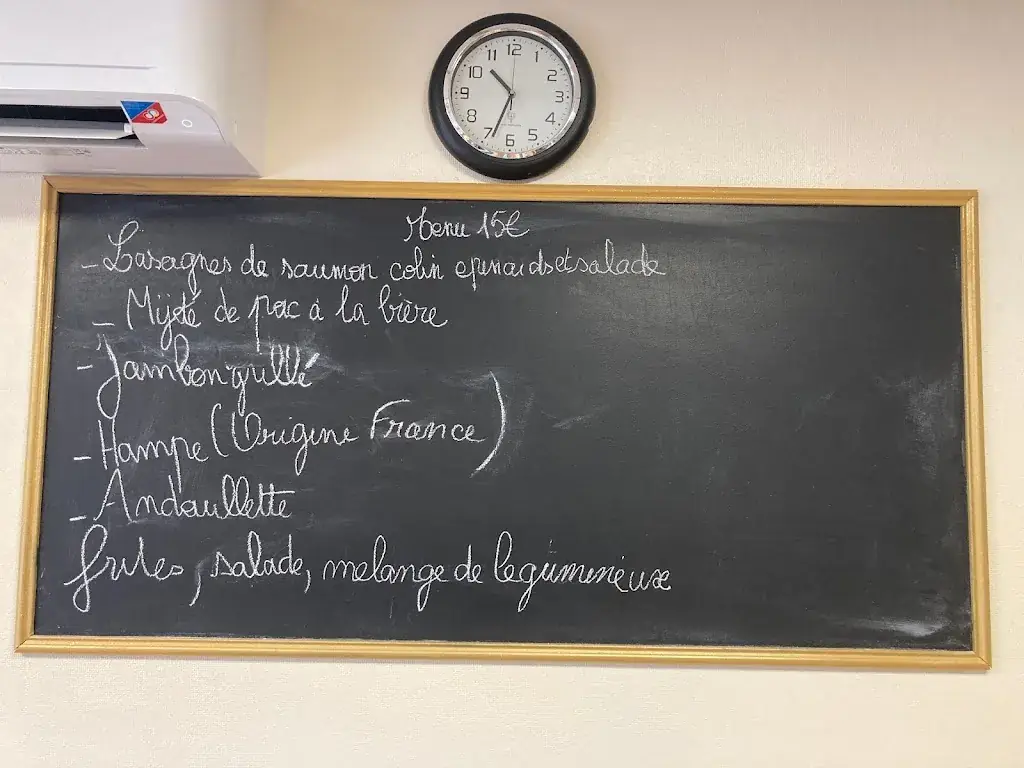 12
11 1
10 2
9 3
8 4
7 5
6
Menu 15€
- Lasagnes de saumon colin epinards et salade
- Mijoté de porc à la bière
- Jambon grillé
- Hampe (Origine France)
- Andouillette
frites, salade, melange de legumineux